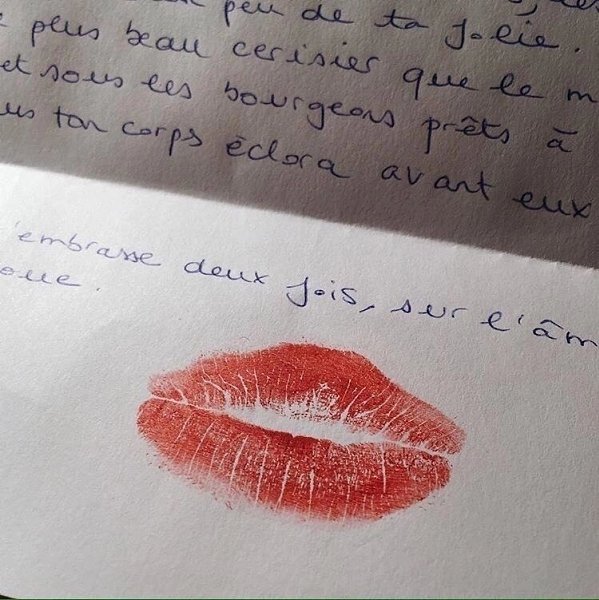 peu de ta folie.
plus beau cerisier que le m
et sous les bourgeons prêts à
ton corps éclora avant eux
'embrasse deux fois, sur l'âm
oue.